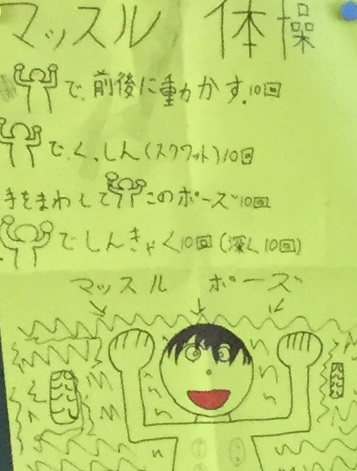 マッスル 体操
で、前後に動かす。10回
でくっしん(スクワット)10回
手をまわして このポーズ10回
でしんきゃく10回(深く10回)
マッスル ポーズ